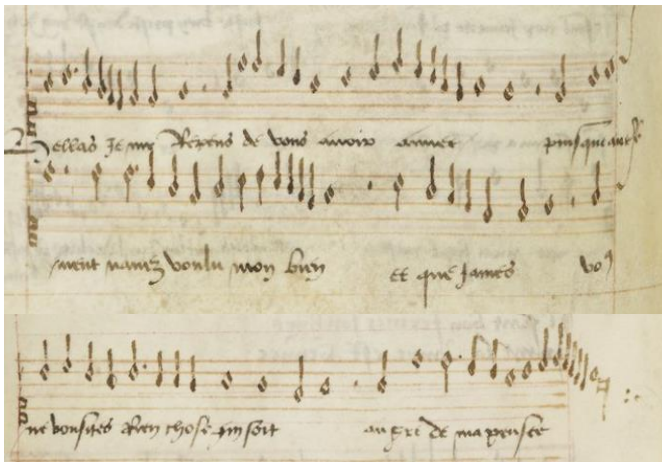 hellas Je me Repens de vous avoir aimee puis que aultre
ment navez voulu mon bien Et que James vo9
ne vousites Rien chose qui soit au gre de ma pensee